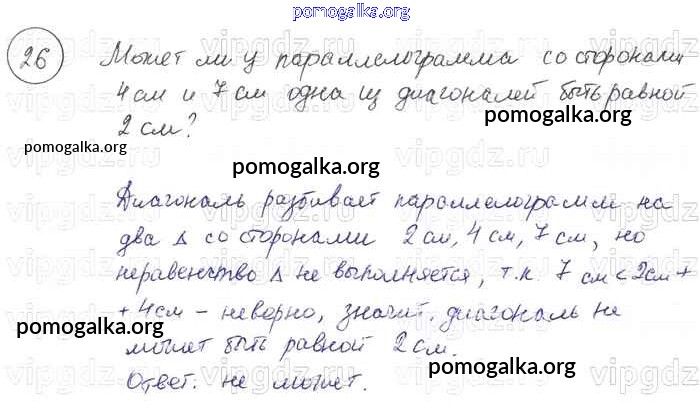 pomogalka.org
26 Может ли у параллелограмма со сторонами
4 см и 7 см одна из диагоналей быть равной
pomogalka.org
2 см?
pomogalka.org
pomogalka.org
Диагональ разбивает параллелограмм на
два Δ со сторонами 2 см, 4 см, 7 см, но
неравенство Δ не выполняется, т.к. 7 см < 2см +
+ 4см – неверно, значит, диагональ не
pomogalka.org
может быть равной 2 см.
pomogalka.org
Ответ: не может.
vipgdz.ru